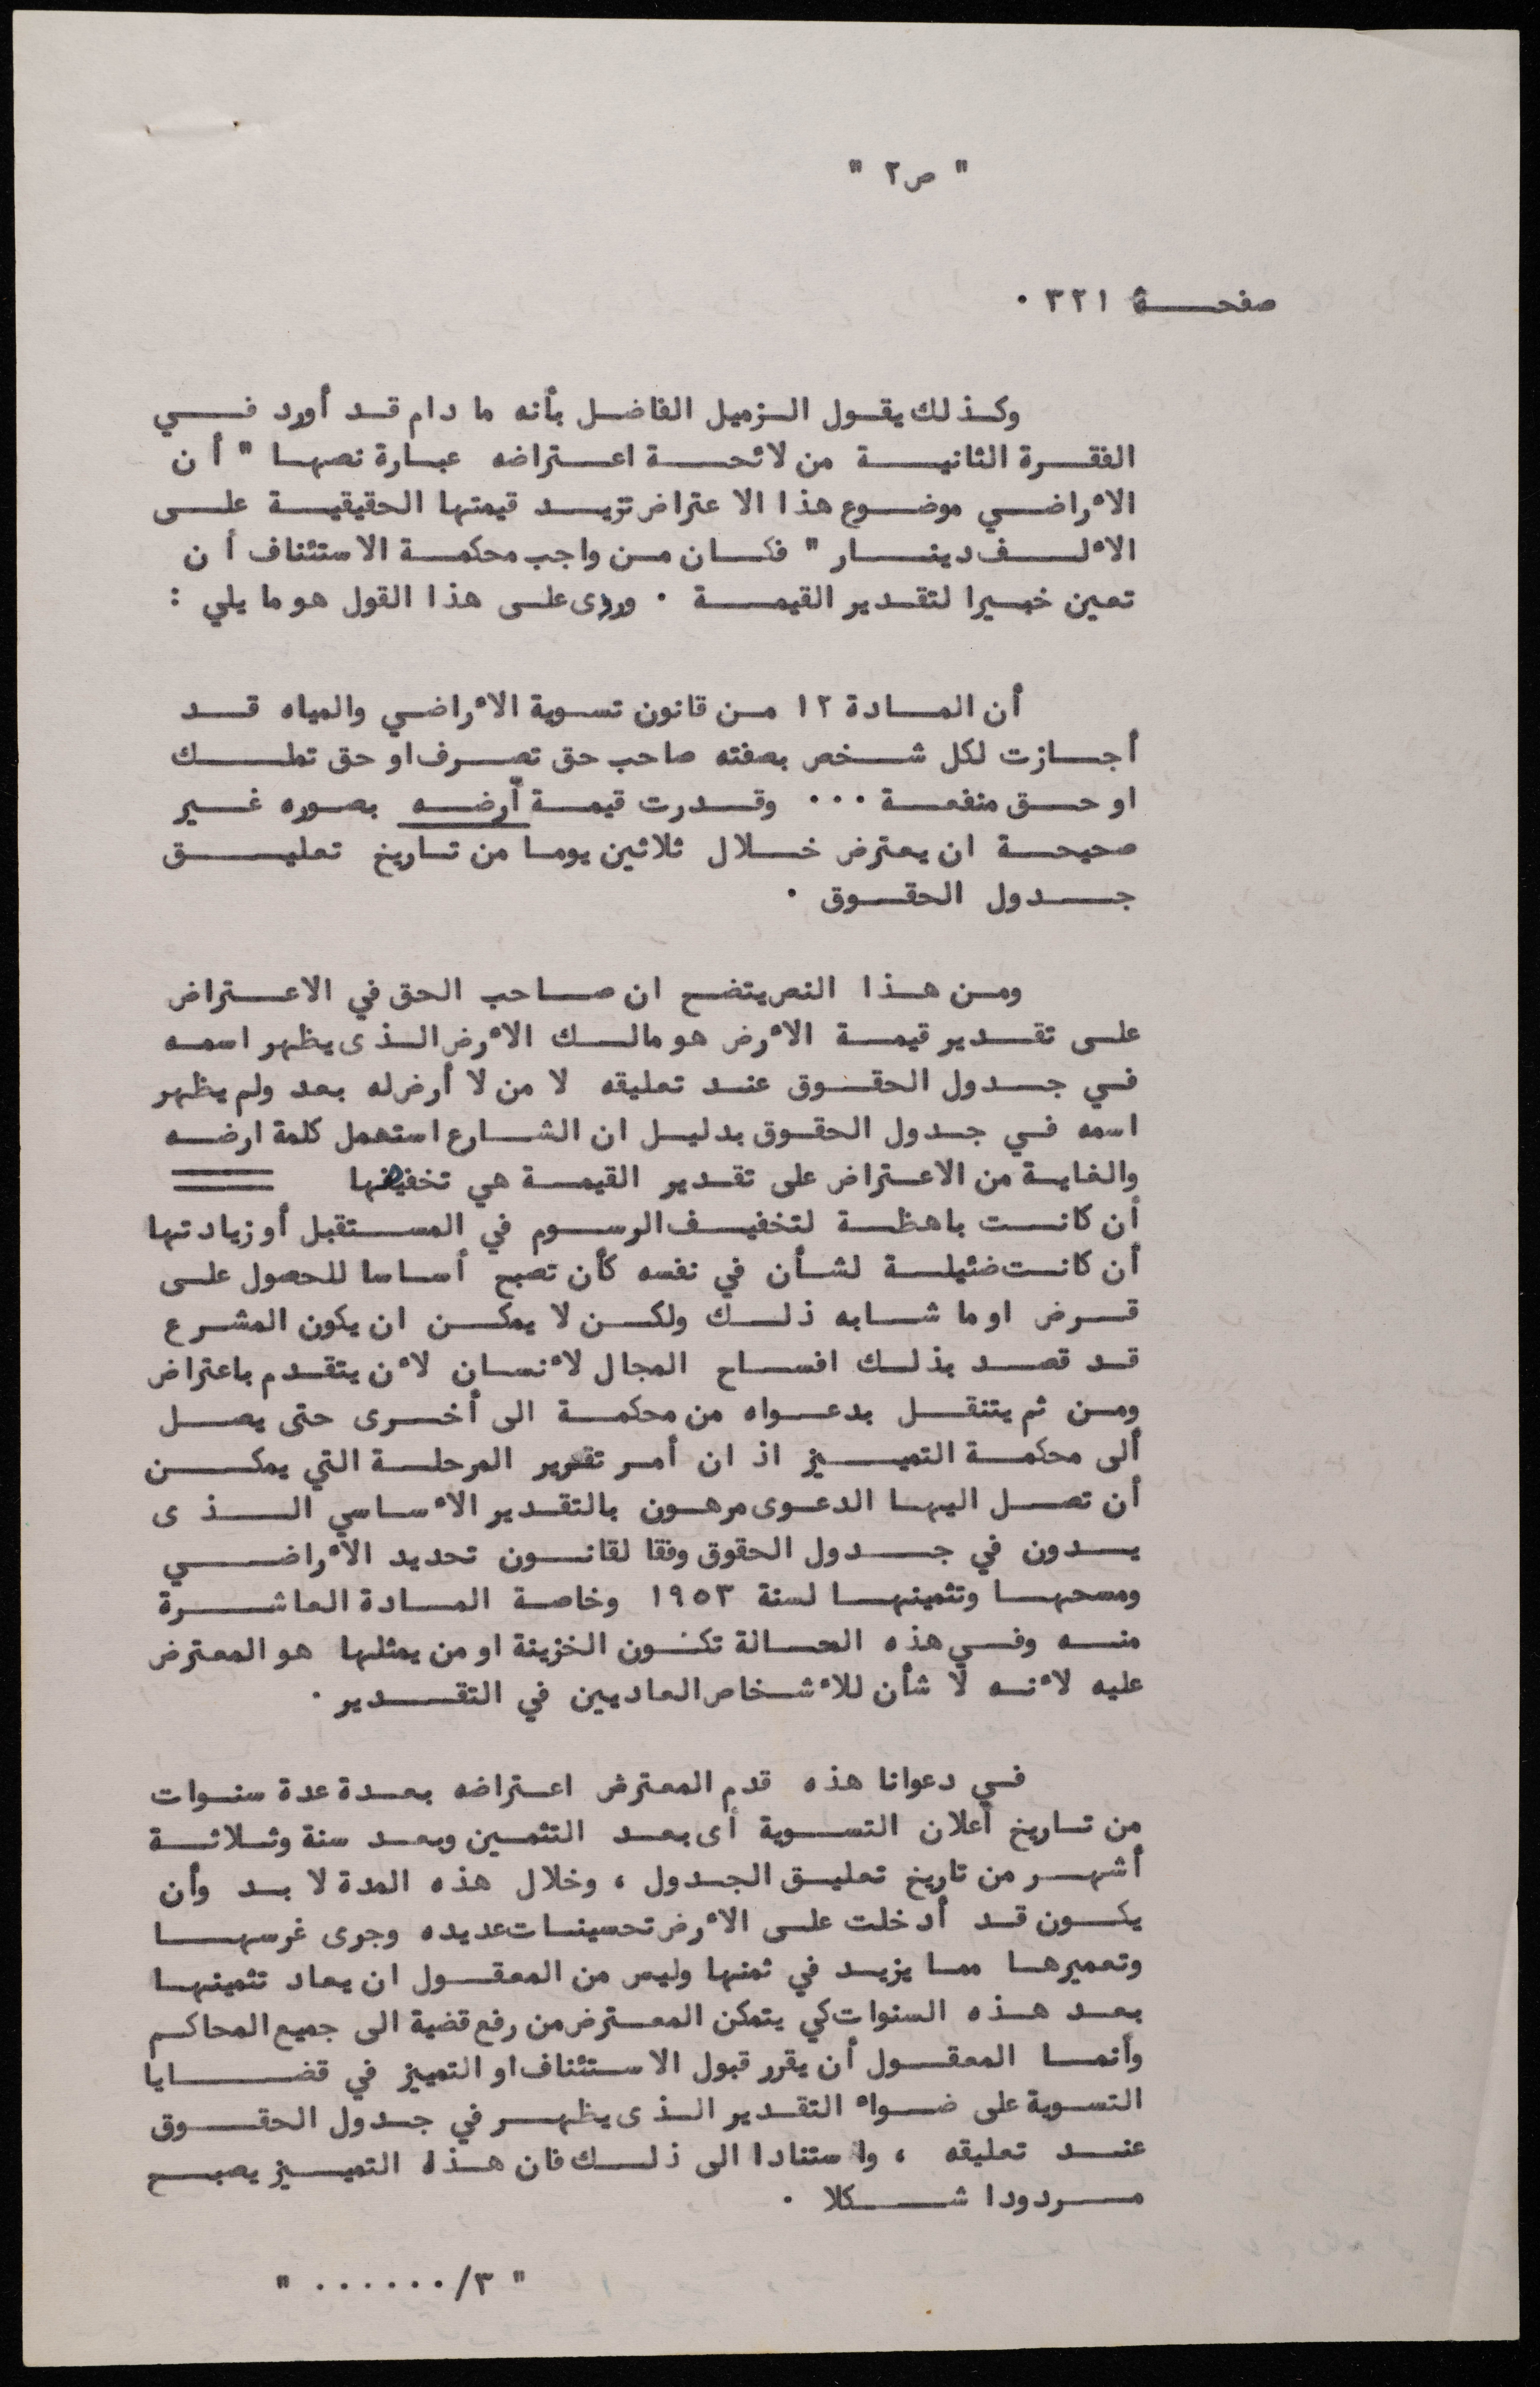 " ص٢ "
صفحة ٣٢١ .
وكذلك يقول الزميل الفاضل بأنه ما دام قد أورد في
الفقرة الثانية من لائحة اعتراضه عبارة نصها " أن
الأراضي موضوع هذا الاعتراض تزيد قيمتها الحقيقية على
الألف دينار " فكان من واجب محكمة الاستئناف أن
تعين خبيرا لتقدير القيمة . وردى على هذا القول هو ما يلي :
أن المادة ١٢ من قانون تسوية الأراضي والمياه قد
أجازت لكل شخص بصفته صاحب حق تصرف او حق تملك
او حق منفعة ... وقدرت قيمة أرضه بصوره غير
صحيحة ان يعترض خلال ثلاثين يوما من تاريخ تعليق
جدول الحقوق .
ومن هذا النص يتضح ان صاحب الحق في الاعتراض
على تقدير قيمة الأرض هو مالك الأرض الذى يظهر اسمه
في جدول الحقوق عند تعليقه لا من لا أرض له بعد ولم يظهر
اسمه في جدول الحقوق بدليل ان الشارع استعمل كلمة ارضه
والغاية من الاعتراض على تقدير القيمة هي تخفيضها
أن كانت باهظة لتخفيف الرسوم في المستقبل أو زيادتها
أن كانت ضئيلة لشأن في نفسه كأن تصبح أساسا للحصول على
قرض او ما شابه ذلك ولكن لا يمكن ان يكون المشرع
قد قصد بذلك افساح المجال لأنسان لأن يتقدم باعتراض
ومن ثم يتنقل بدعواه من محكمة الى أخرى حتى يصل
ألى محكمة التمييز اذ ان أمر تقرير المرحلة التي يمكن
أن تصل اليها الدعوى مرهون بالتقدير الأساسي الذى
يدون في جدول الحقوق وفقا لقانون تحديد الأراضي
ومسحها وتثمينها لسنة ١٩٥٣ وخاصة المادة العاشرة
منه وفي هذه الحالة تكون الخزينة او من يمثلها هو المعترض
عليه لأنه لا شأن للأشخاص العاديين في التقدير .
في دعوانا هذه قدم المعترض اعتراضه بعدة عدة سنوات
من تاريخ أعلان التسوية أى بعد التثمين وبعد سنة وثلاثة
أشهر من تاريخ تعليق الجدول ، وخلال هذه المدة لا بد وأن
يكون قد أدخلت على الأرض تحسينات عديده وجرى غرسها
وتعميرها مما يزيد في ثمنها وليس من المعقول ان يعاد تثمينها
بعد هذه السنوات كي يتمكن المعترض من رفع قضية الى جميع المحاكم
وأنما المعقول أن يقرر قبول الاستئناف او التمييز في قضايا
التسوية على ضواء التقدير الذى يظهر في جدول الحقوق
عند تعليقه ، واستنادا الى ذلك فان هذا التمييز يصبح
مردودا شكلا .
" ٣/...... "